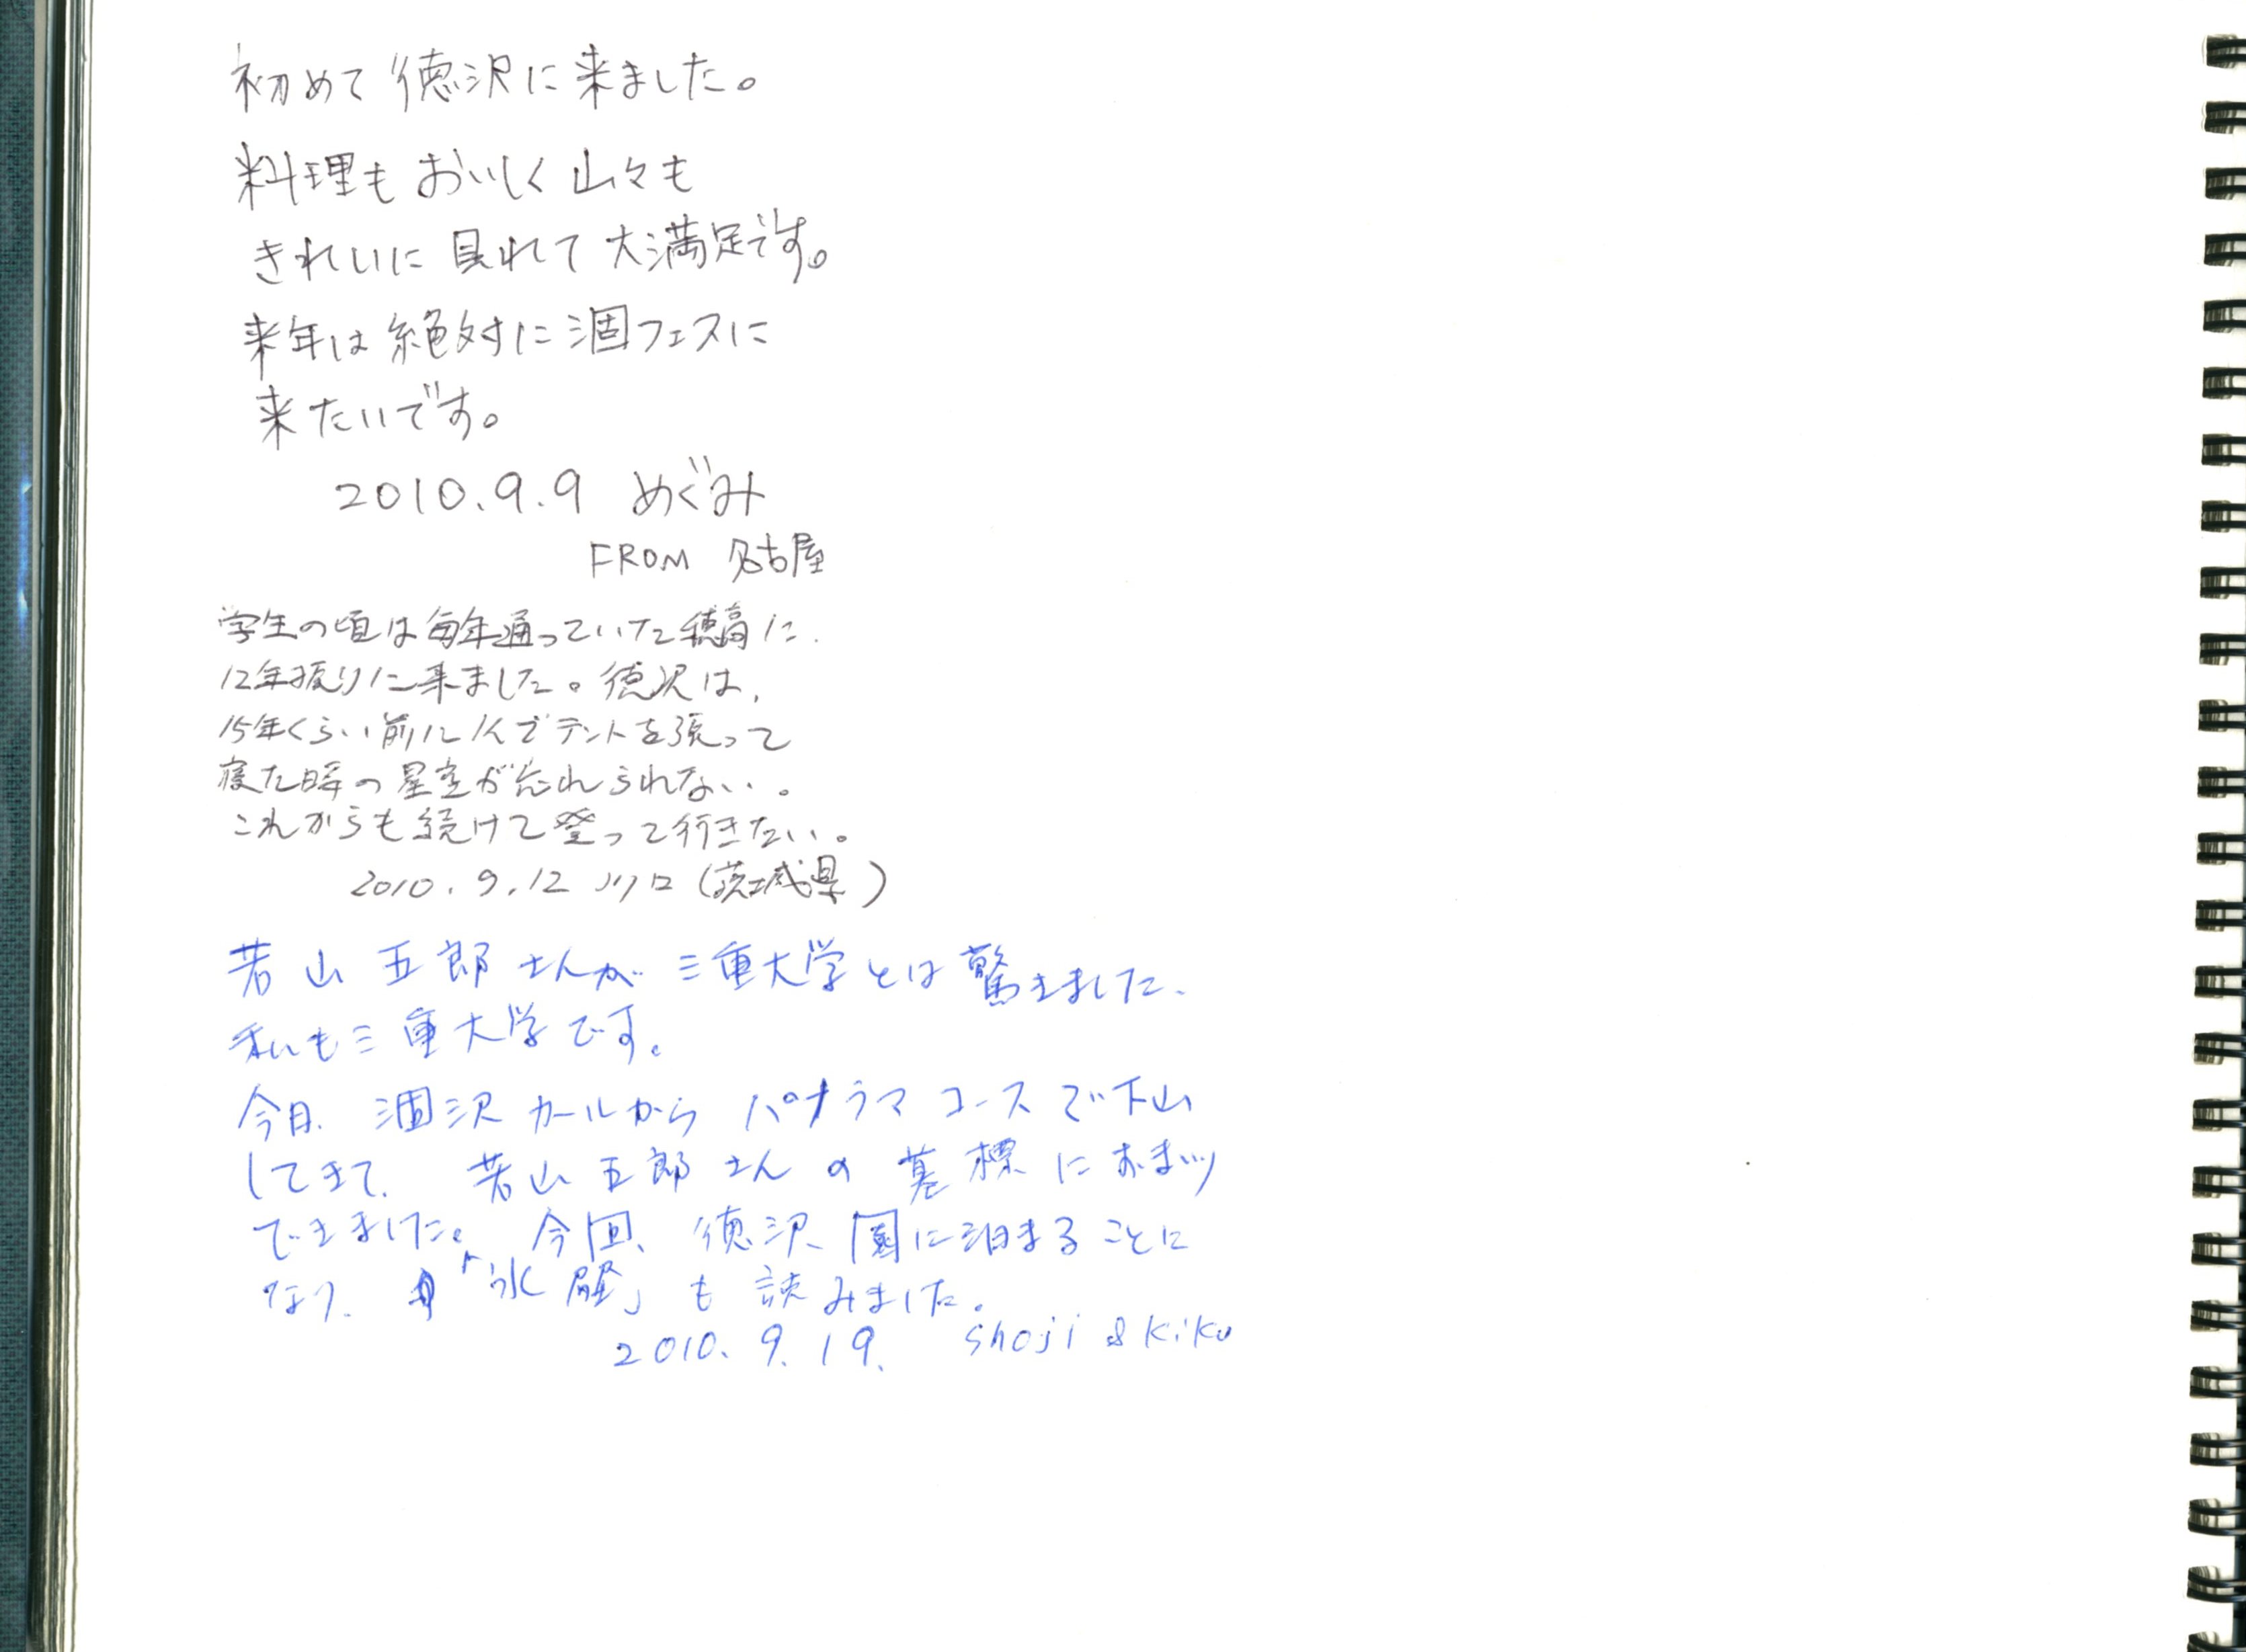 初めて徳沢に来ました。
料理もおいしく山々も
きれいに見れて大満足です。
来年は絶対に涸フェスに
来たいです。
2010.9.9 めぐみ
FROM 名古屋
学生の頃は毎年通っていた穂高に、
12年振りに来ました。徳沢は、
15年くらい前に1人でテントを張って
寝た時の星空が忘れられない。
これからも続けて登って行きたい。
2010.9.12 川口(茨城県)
若山五郎さんが三重大学とは驚きました、
私も三重大学です。
今日、涸沢カールからパノラマコースで下山
してきて、若山五郎さんの墓標におまいり
できました。今回、徳沢園に泊まることに
なり、「氷壁」も読みました。
2010.9.19. Shoji & Kiku